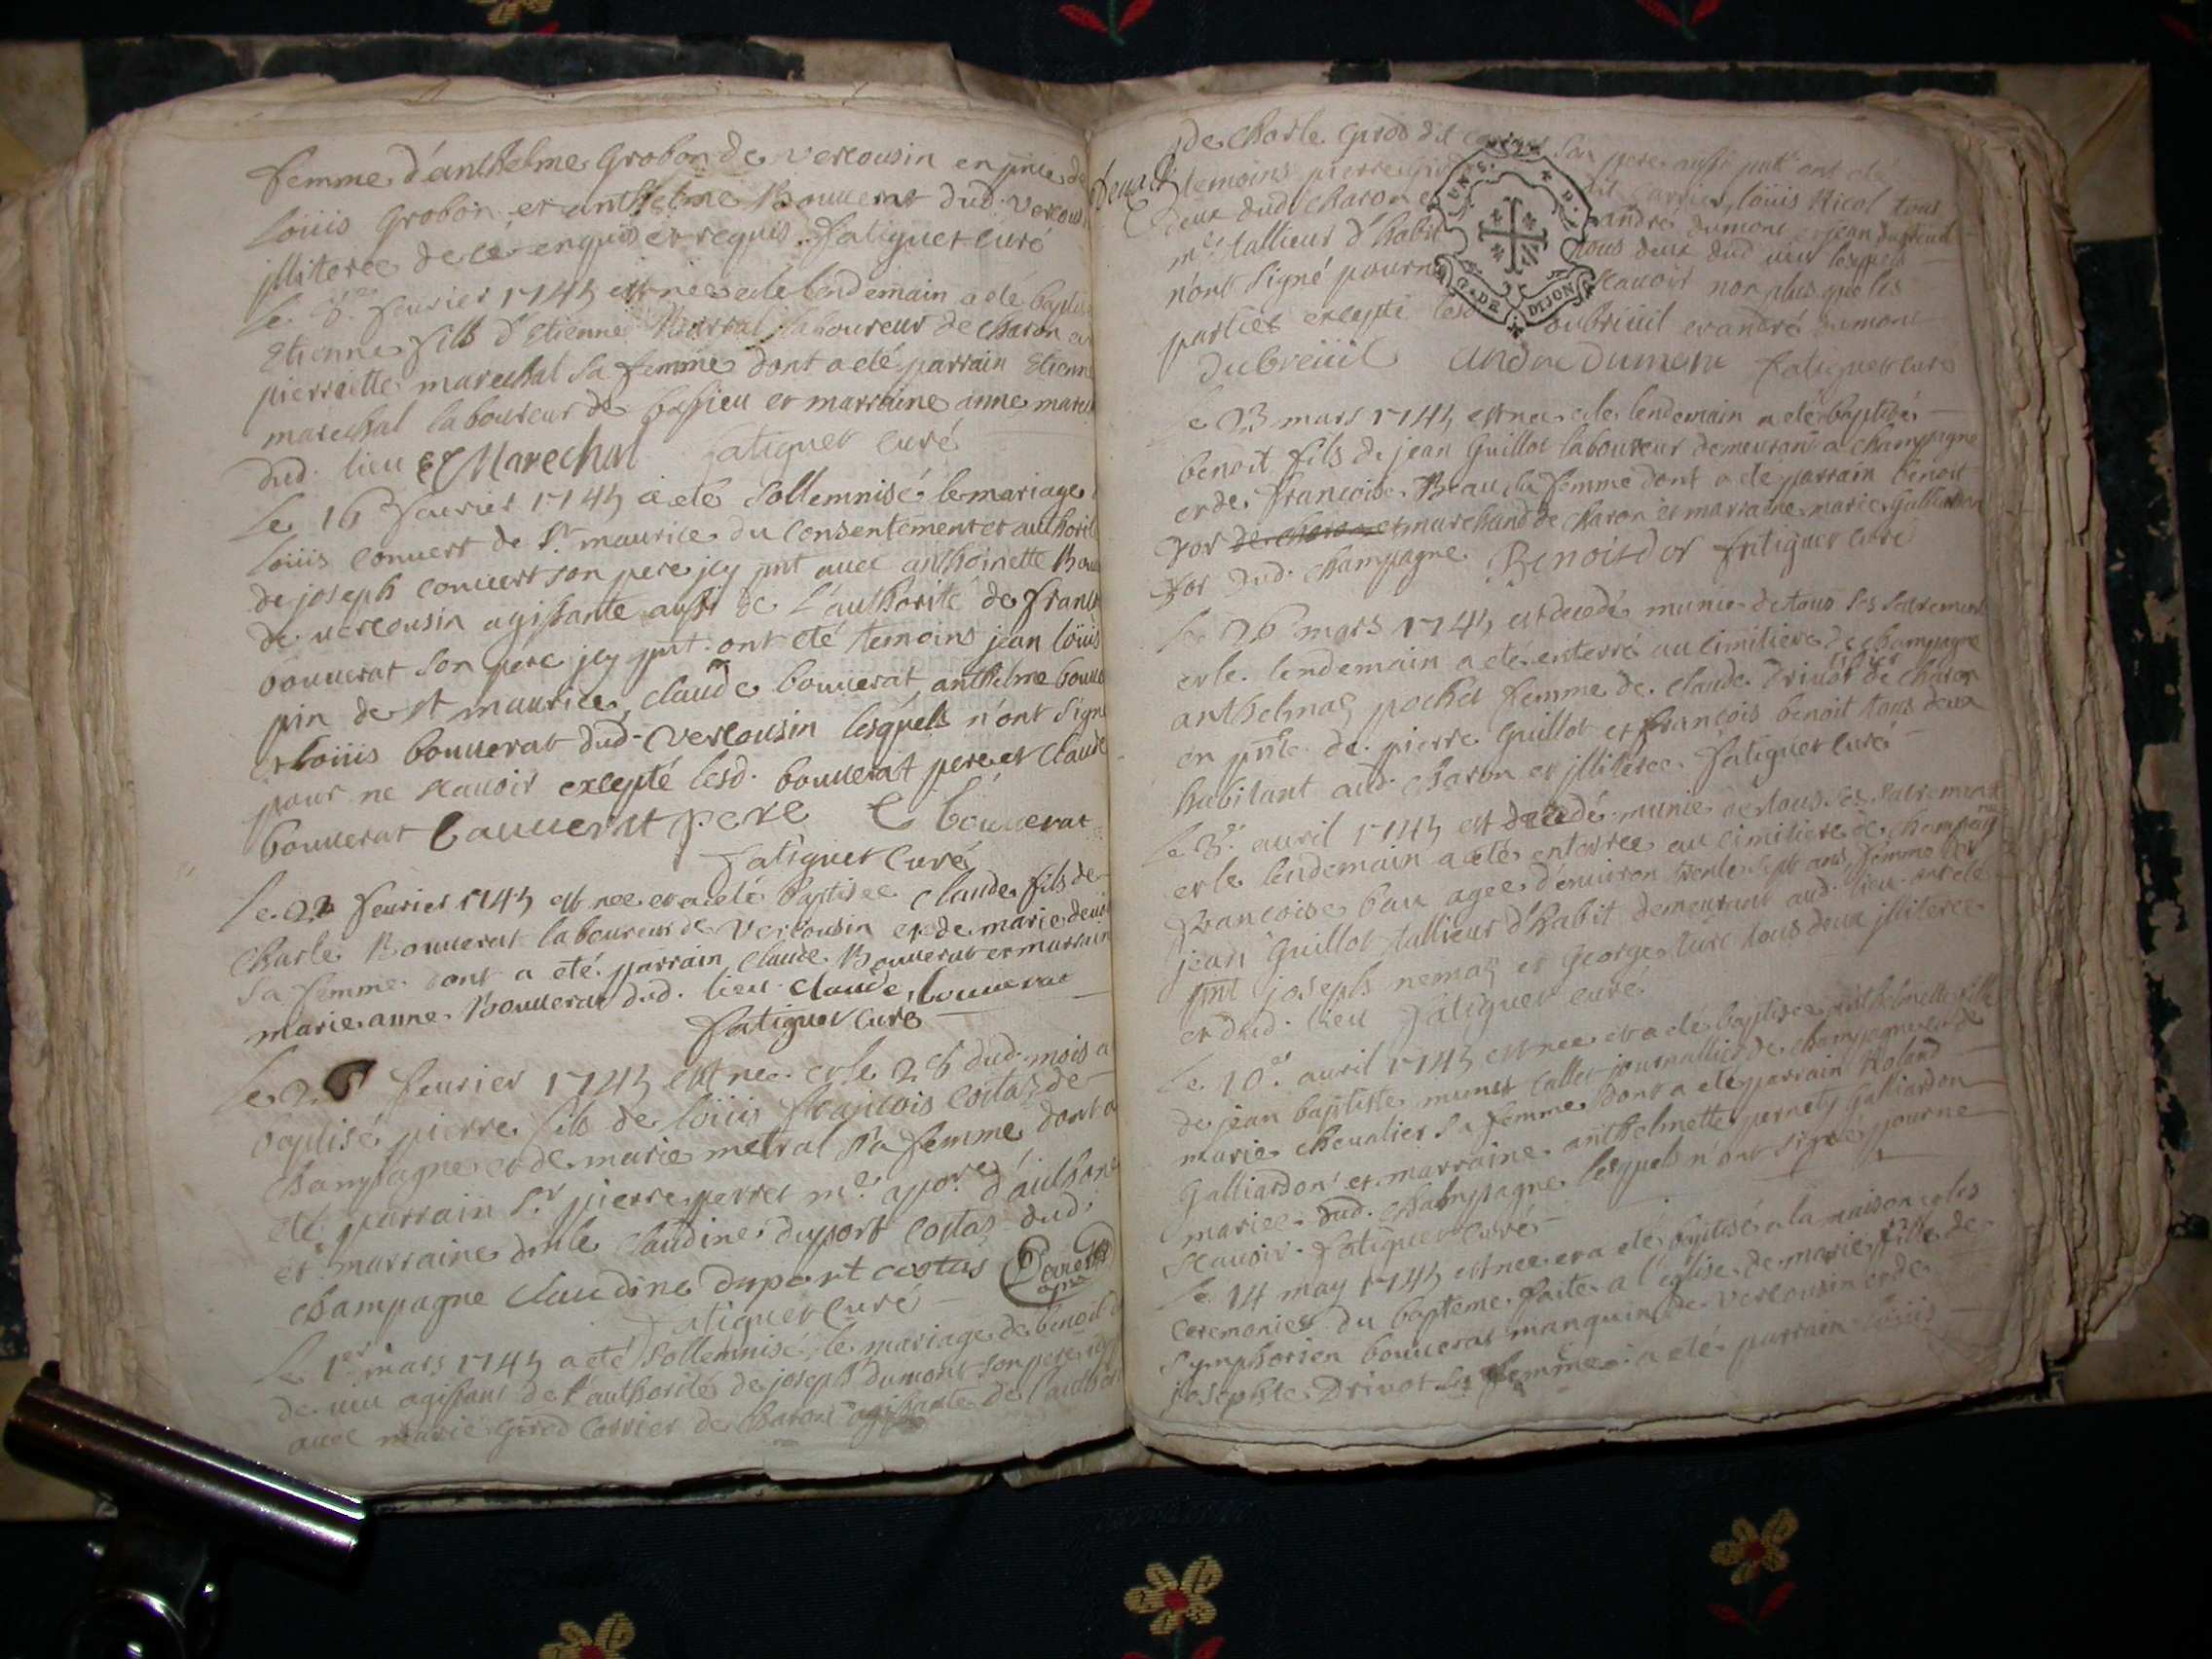 femme d'anthelme Grobon de vercousin en pnce de
loüis Grobon et anthelme Bouuerat dud. Vercous
jlliteree de ce enquis et requis. fatiguet curé
Le 8e feurier 1745 est née et le lendemain a eté baptis
Etienne fils d'Etienne laboureur de charon et
pierrette marechal sa femme dont a eté parrain Etienne
marechal laboureur de bessieu et marraine anne marec
dud. lieu E Marechal fatiguet curé
Le 16 feurier 1745 a eté sollemnisé le mariage
loüis conuert de St maurice du consentement et authorité
de joseph conuert son pere jcy pnt auec anthoinette Bou
de vercousin agissante aussi de l'authorité de franco
bouuerat son pere jcy pnt. ont eté temoins jean loüis
pin de st maurice, claude bouuerat, anthelme bouue
et loüis bouuerat dud. vercousin lesquels n'ont signé
pour ne scauoir excepté lesd. bouuerat pere et claude
bouuerat bauuerat pere C bouuerat
fatiguet curé
Le 22 feurier 1745 est nee et a eté baptisee claude fils de
charle Bouuerat laboureur de vercousin et de marie
sa femme dont a eté parrain claude Bouuerat et marrain
marie anne Bouuerat dud. lieu claude bouuerat
fatiguet curé
Le 25 feurier 1745 est ne et le 26 dud. mois a
baptisé pierre fils de loüis francois costaz de
champagne et de marie metral sa femme dont a
eté parrain Sr pierre perret me apore d'authone
et marraine dlle claudine duport costaz dud.
champagne claudine duport costas Peret
fatiguet curé
Le 1er mars 1745 a eté sollemnisé le mariage de benoit d
de uiu agissant de l'authorité de joseph dumont son pere jcy
auec marie grod carrier de charon agissante de l'author
de charle grod dit son pere aussi pnt ont eté
temoins pierre dit carrier, loüis Nicol tous
deux dud. charon andré dumont et jean dubreuil
me tallieur d'habit tous deux dud uiu lesquels
n'ont signé pour n scauoir non plus que les
parties excepté lesd dubreüil et andré dumont
dubreüil andre dumont fatiguet curé
UNS. D. G. DE DIJON
Le 23 mars 1745 est ne et le lendemain a eté baptisé
benoit fils de jean Guillot laboureur demeurant a champagne
et de francoise Beau sa femme dont a eté parrain benoit
dor de charon et marchand de charon et marraine marie Galliardon
dor dud. champagne Benoit dor fatiguet curé
Le 26 mars 1745 est decedé munie de tous ses sacrements
et le lendemain a eté enterré au cimitiere de champagne
anthelmaz pochet femme de claude driuot tissier de charon
en pnte de pierre Guillot et francois benoit tous deux
habitant aud. charon et jlliteree. fatiguet curé
Le 3e auril 1745 est decedé munie de tous ses sacrements
et le lendemain a eté enterree au cimitiere de champagne
francoise bau agee d'enuiron trente sept ans femme de
jean Guillot tallieur d'habit demeurant aud. lieu ont eté
pnt joseph nemaz et George turc tous deux jlliteree
et dud. lieu fatiguet curé
Le 10e auril 1745 est nee et a eté baptisee anthelmette fille
de jean baptiste munet callet journallier de champagne et de
marie cheualier sa femme dont a eté parrain Roland
Galliardon et marraine anthelmette pernety Galliardon
mariee dud. champagne lesquels n'ont signé pour ne
scauoir. fatiguet curé
Le 14 may 1745 est nee et a eté baptisé a la maison et les
ceremonies du bapteme faite a l'église de marie fille de
symphorien bouuerat manquin de vercousin et de
josephte Driuot sa femme a eté parrain loüis